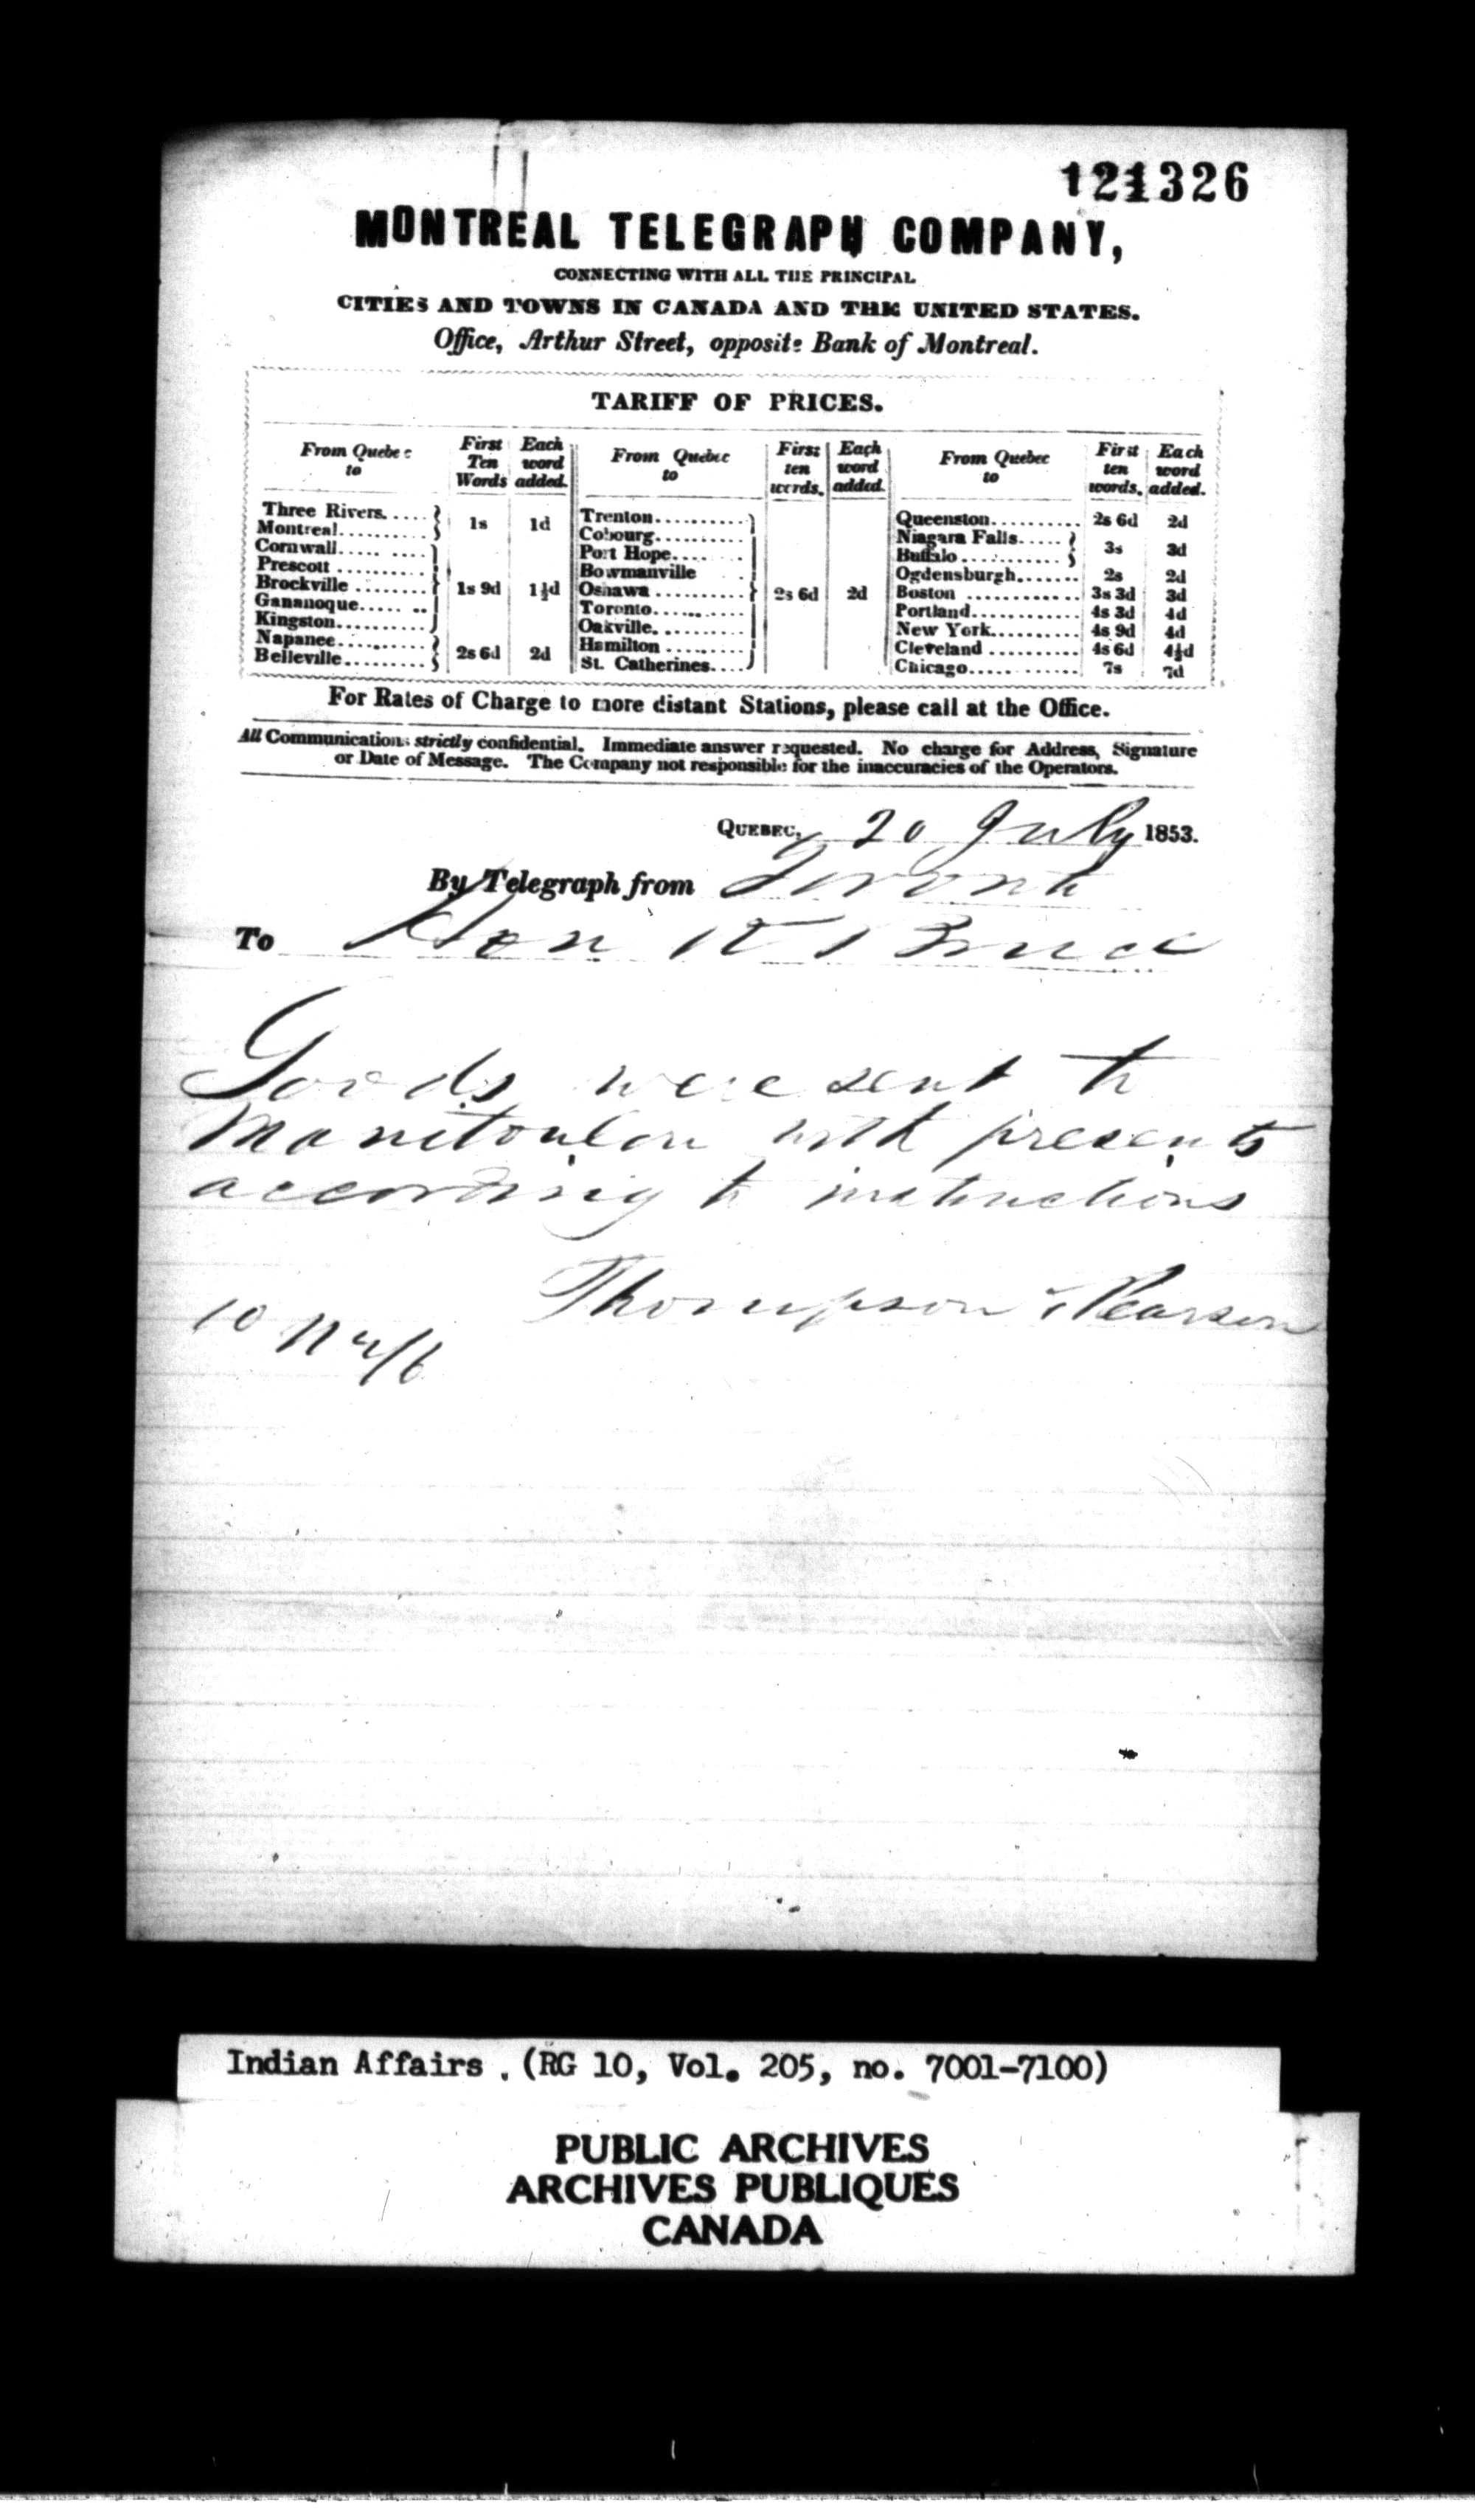 121326
MONTREAL TELEGRAPH COMPANY,
CONNECTING WITH ALL THE PRINCIPAL
CITIES AND TOWNS IN CANADA AND THE UNITED STATES.
Office, Arthur Street, opposite Bank of Montreal.
TARIFF OF PRICES.
From Quebec to | First Ten Words | Each word added. | From Quebec to | First ten words. | Each word added. | From Quebec to | First ten words. | Each word added.
Three Rivers..... Montreal.......... } 1s 1d
Cornwall..... .... Prescott .......... Brockville ........ Gananoque..... .. Kingston.......... } 1s 9d 1½d
Napanee.......... Belleville......... } 2s 6d 2d
Trenton.......... Cobourg.......... Port Hope.... .... Bowmanville Oshawa .......... Toronto.......... Oakville.......... Hamilton ......... St. Catherines.... } 2s 6d 2d
Queenston.......... 2s 6d 2d
Niagara Falls..... Buffalo ........... } 3s 3d
Ogdensburgh....... 2s 2d
Boston ............ 3s 3d 3d
Portland........... 4s 3d 4d
New York.......... 4s 9d 4d
Cleveland .......... 4s 6d 4½d
Chicago..... ....... 7s 7d
For Rates of Charge to more distant Stations, please call at the Office.
All Communications strictly confidential. Immediate answer requested. No charge for Address, Signature
or Date of Message. The Company not responsible for the inaccuracies of the Operators.
QUEBEC, 20 July 1853.
By Telegraph from Toronto
To Hon Bruce
Goods were sent to
Manitoulin with presents
according to instructions
Thompson & Pearson
10 2/6
Indian Affairs. (RG 10, Vol. 205, no. 7001-7100)
PUBLIC ARCHIVES
ARCHIVES PUBLIQUES
CANADA